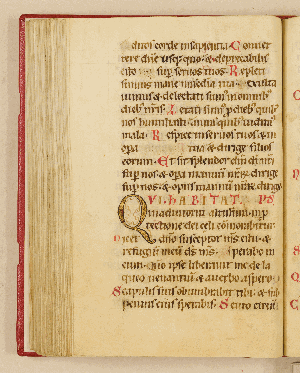 ditos corde in sapientia Conuer
tere dñe usequo & deprecabilis
esto sup seruos tuos Repleti
sumus mane misericordia tua & exulta
uimus & delectati sumus in omnib;
dieb; nris Letati sumus p dieb; quib;
nos humiliasti annis quib; uidim;
mala Respice in seruos tuos & in
opa tua & dirige filios
eorum Et sit splendor dñi di nri
sup nos & opa manuum nrarum dirige
sup nos & opus manuum nrarum dirige
QUI HABITAT
in adiutorio altissimi in p
tectione dei celi commorabitur
Dicet dño susceptor ms es tu &
refugium meum ds ms sperabo in
eum Qm ipse liberauit me de la
queo uenantium & a uerbo aspero
Scapulis suis obumbrabit tibi & sub
pennis eius sperabis Scuto circu